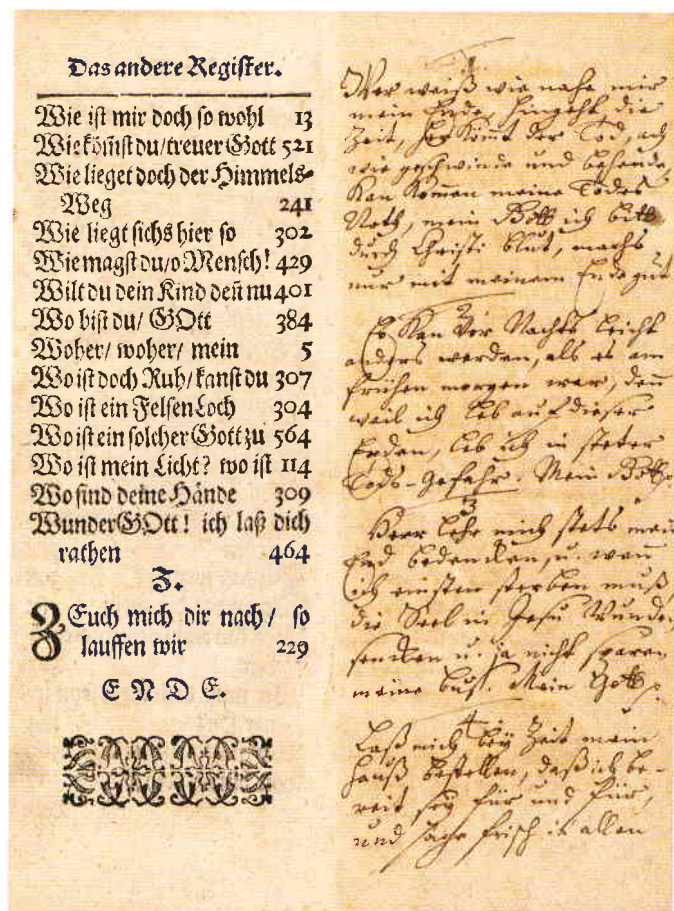 Das andere Register.
Wie ist mir doch so wohl 13
Wie kömst du/treuer Gott 521
Wie lieget doch der Himmels-
Weg 241
Wie liegt sichs hier so 302
Wie magst du/o Mensch! 429
Wilt du dein Kind deñ nu 401
Wo bist du/ GOtt 384
Woher/ woher/ mein 5
Wo ist doch Ruh/kanst du 307
Wo ist ein Felsen Loch 304
Wo ist ein solcher Gott zu 564
Wo ist mein Licht? wo ist 114
Wo sind deine Hände 309
Wunder GOtt! ich laß dich
rathen 464
Z.
ZEuch mich dir nach/ so
lauffen wir 229
ENDE.
1.
Wer weiß wie nahe mir
mein Ende, hingeht die
Zeit, her kömt der Tod, ach
wie geschwinde und behende,
Kan kommen meine Todes
Noth, mein Gott ich bitt
durch Christi blut, machs
nur mit meinem Ende gut
2
Es kan vor Nachts leicht
anders werden, als es am
frühen morgen war, deñ
weil ich leb auf dieser
Erden, leb ich in steter
Tods-Gefahr. Mein Gott
3
Herr lehr mich stets mein
End bedencken, u. wenn
ich einsten sterben muß,
die Seel in Jesu Wunden
sencken u. ja nicht sparen
meine buß. Mein Gott
4
Laß mich bey Zeit mein
Hauß bestellen, daß ich be-
reit sey für und für,
und sage frisch in allen